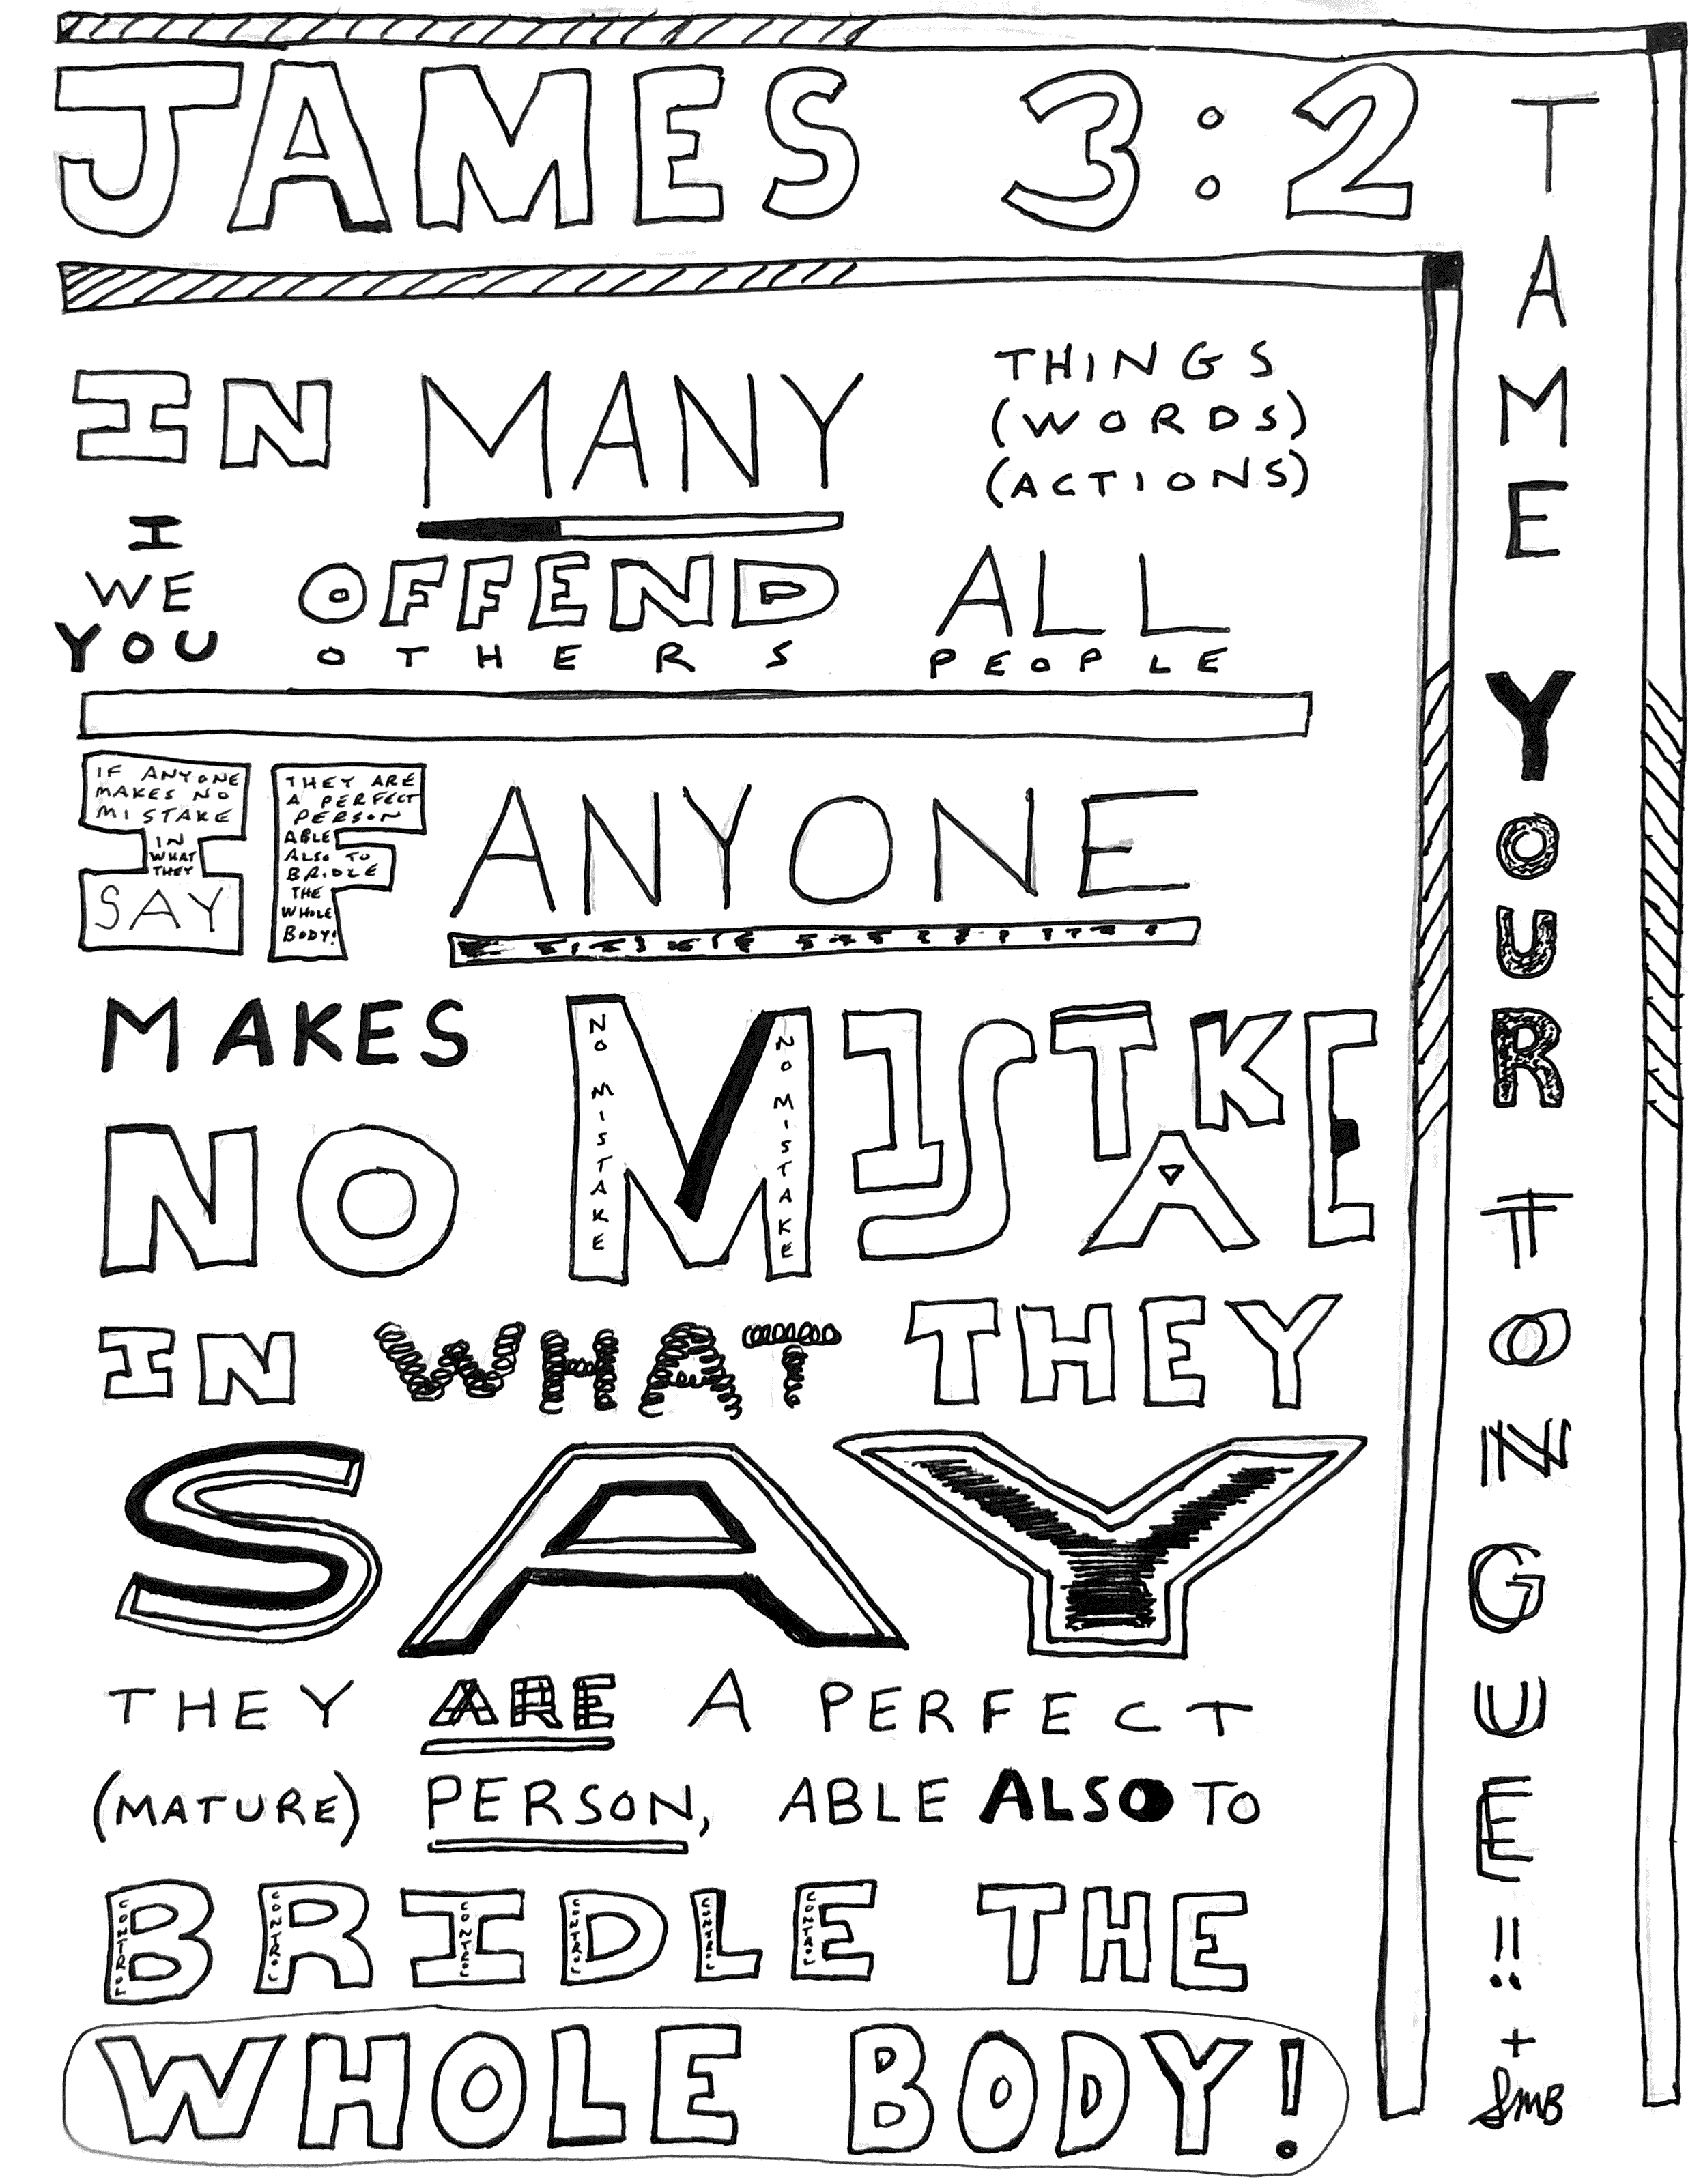 JAMES 3:2
IN MANY THINGS
(WORDS)
(ACTIONS)
I
WE
YOU
OFFEND ALL
OTHERS PEOPLE
IF
IF ANYONE
MAKES NO
MISTAKE
IN
WHAT
THEY
SAY
THEY ARE
A PERFECT
PERSON
ABLE
ALSO TO
BRIDLE
THE
WHOLE
BODY!
ANYONE
MAKES
NO MISTAKE
NO MISTAKE
NO MISTAKE
IN WHAT THEY
SAY
THEY ARE A PERFECT
(MATURE) PERSON, ABLE ALSO TO
BRIDLE THE
CONTROL
CONTROL
CONTROL
CONTROL
CONTROL
CONTROL
WHOLE BODY!
TAME YOUR TONGUE!!
+
SMB